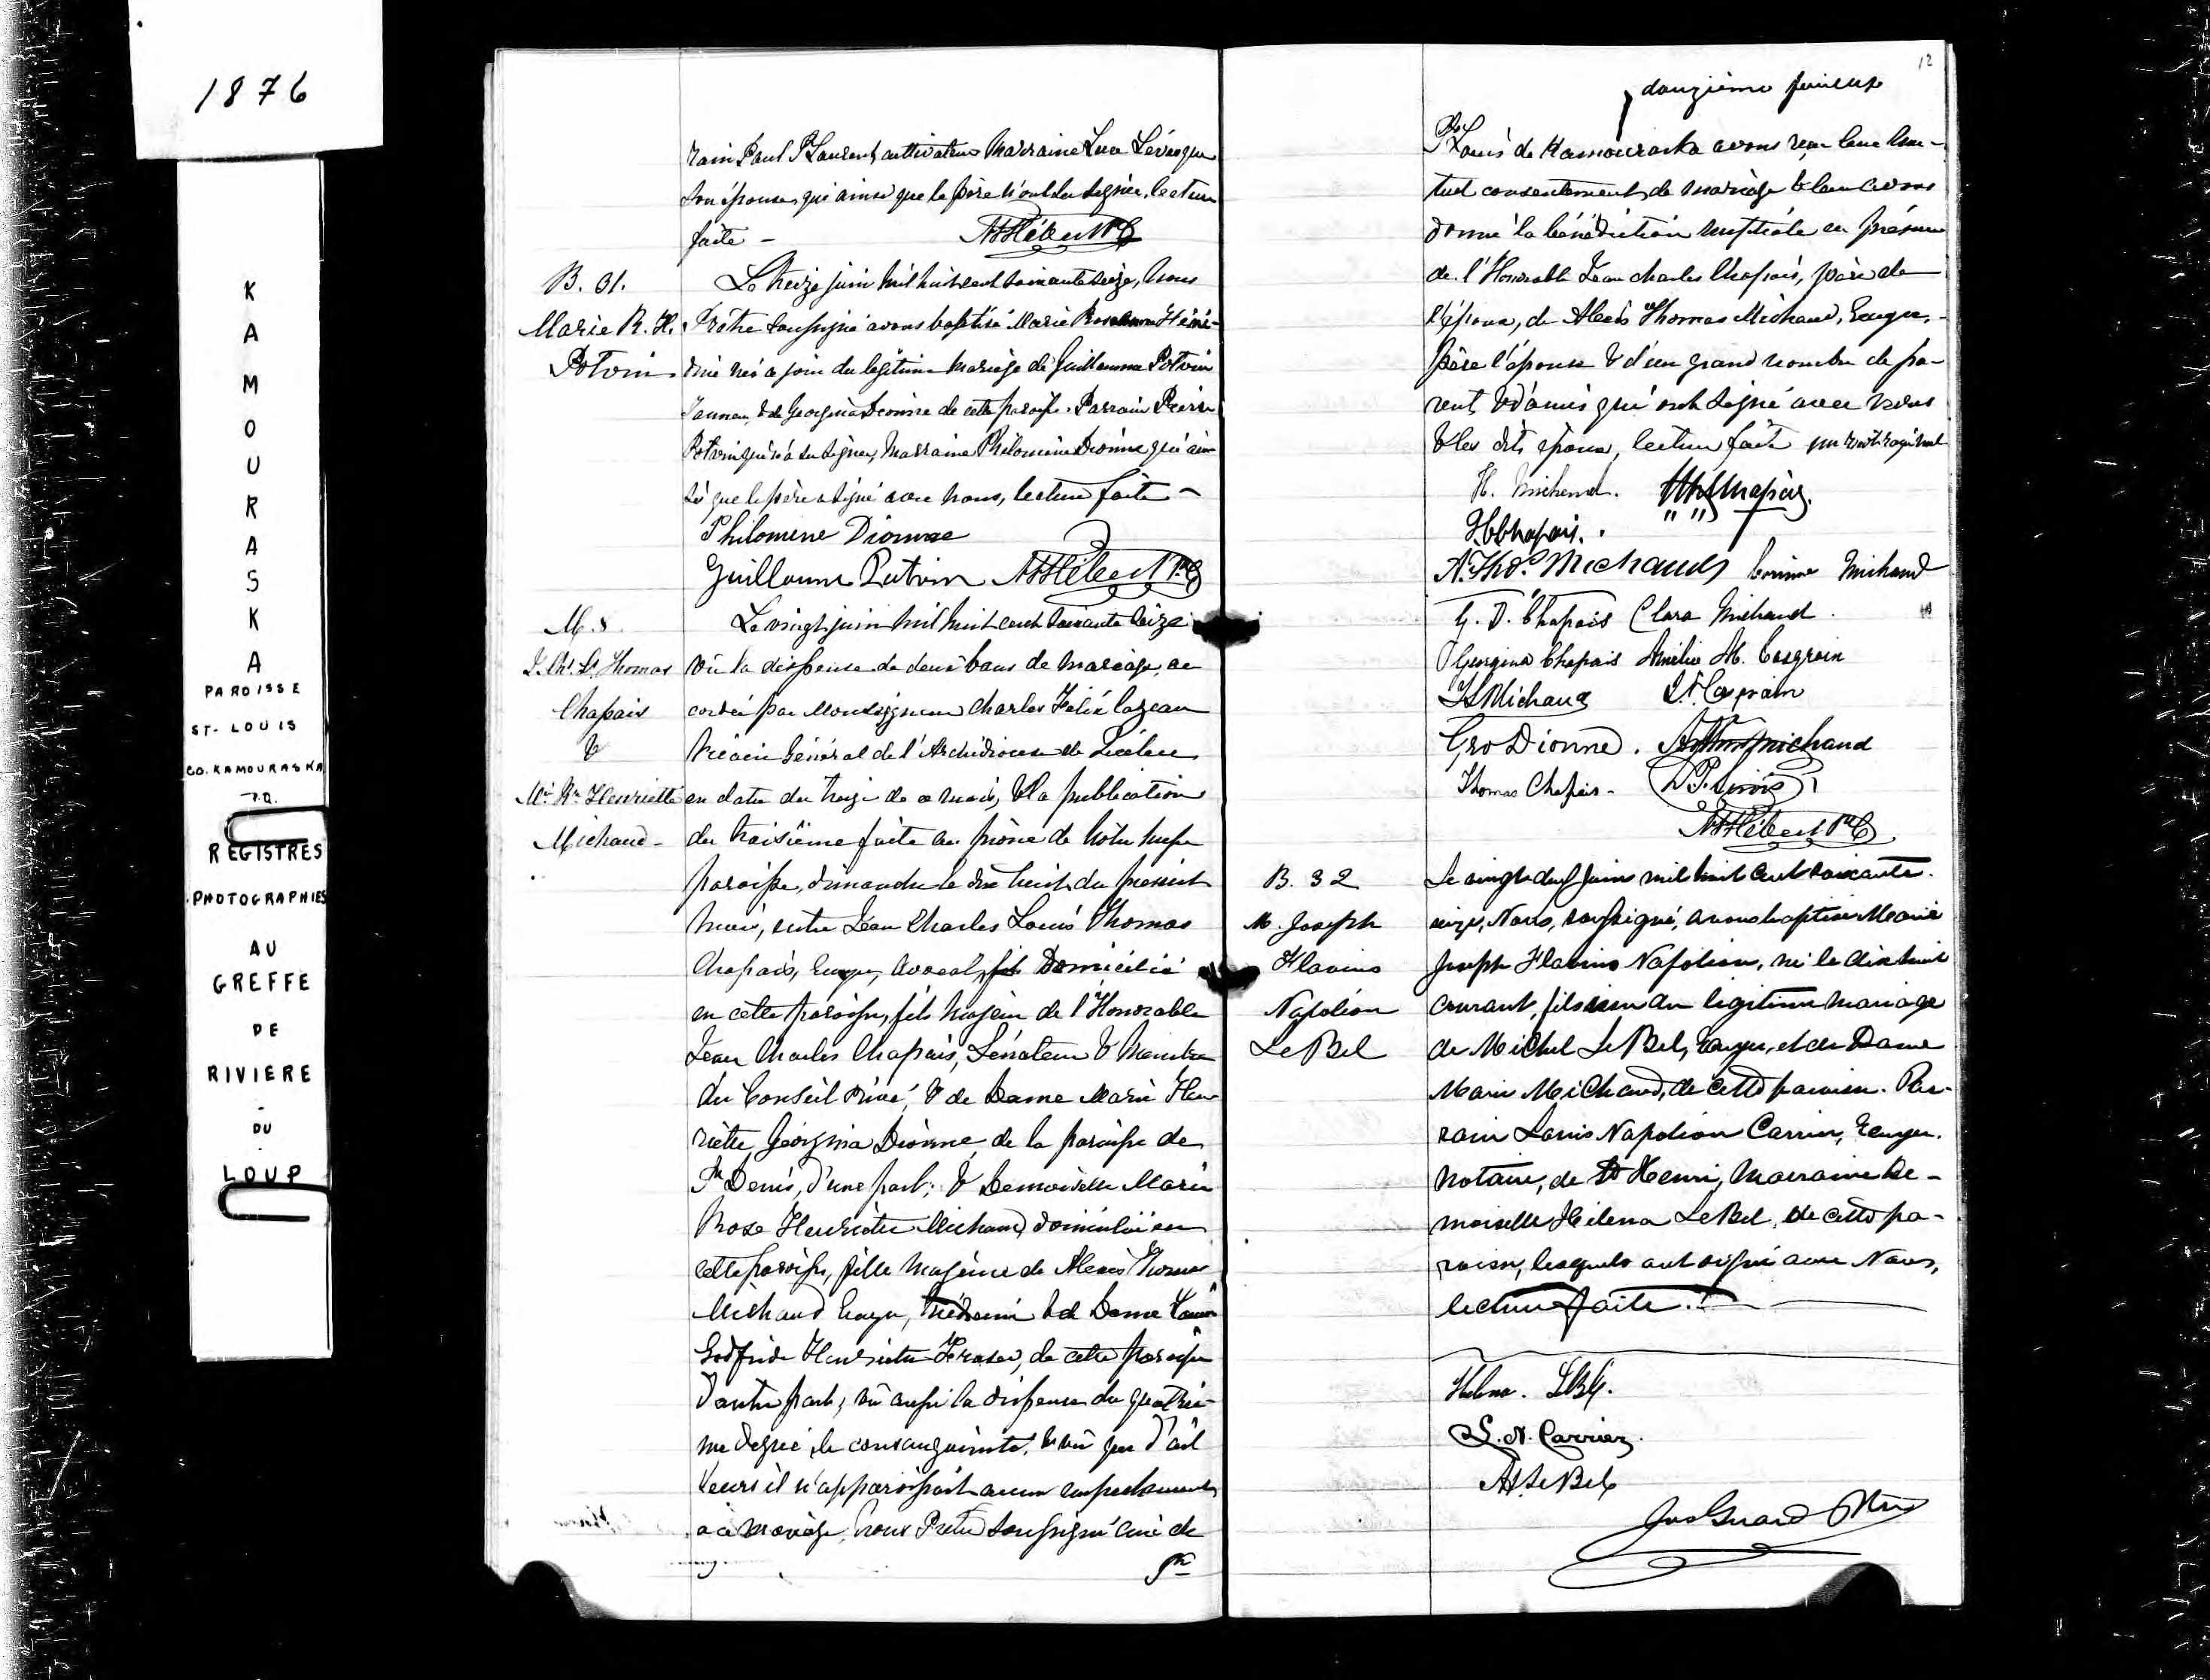 1876
KAMOURASKA
PAROISSE
ST-LOUIS
CO. KAMOURASKA
P.Q.
REGISTRES
PHOTOGRAPHIES
AU
GREFFE
DE
RIVIERE
-
DU
-
LOUP
rain Paul St Laurent cultivateur Marraine Luce Lévesque
son épouse, qui ainsi que le père n'ont su signer, lecture
faite -
Hébert Ptre C
B. 31.
Marie R. H.
Potvin
Le treize juin mil huit cent soixante seize, Nous
Prêtre soussigné avons baptisé Marie Hémé-
née ce jour du légitime mariage de Guillaume Potvin
& de Georgina Dionne de cette paroisse. Parrain Pierre
Potvin qui n'a su signer, Marraine Philomène Dionne qui ain-
si que le père a signé avec nous, lecture faite -
Philomene Dionne
Guillaume Potvin Hébert Ptre C
M. 8
J. Chs. Ls. Thomas
Chapais
&
Mie Re Henriette
Michaud -
Le vingt juin mil huit cent soixante seize
vû la dispense de deux bans de mariage, ac
cordée par Monseigneur Charles Félix Cazeau
Vicaire Général de l'Archidiocèse de Québec
en date du treize de ce mois, & la publication
du troisième faite au prône de notre messe
paroisse, dimanche le dix huit du présent
mois, entre Jean Charles Louis Thomas
Chapais, Ecuyer, avocat, Domicilié
en cette paroisse, fils majeur de l'Honorable
Jean Charles Chapais, Sénateur & Membre
du Conseil Privé, & de Dame Marie Hen
riette Géorgina Dionne, de la paroisse de
St Denis, d'une part; & Demoiselle Marie
Rose Henriette Michaud domiciliée en
cette paroisse, fille majeure de Alexis Thomas
Michaud Ecuyer, Médecin & de Dame
Godfride Henriette Fraser, de cette paroisse
d'autre part; vû aussi la dispense du quatriè-
me degré de consanguinité, & vû que d'ail
leurs il n'apparaissait aucun empêchement
à ce mariage, Nous Prêtre soussigné Curé de
St
12
douzième feuillet
St Louis de Kamouraska avons reçu leur mu-
tuel consentement de mariage & leur avons
donné la bénédiction nuptiale en présence
de l'Honorable Jean Charles Chapais, père de
l'époux, de Alexis Thomas Michaud, Ecuyer,
père l'épouse & d'un grand nombre de pa-
rents & d'amis qui ont signé avec nous
& les dits époux, lecture faite
H. Michaud. Chapais.
Chapais.
A. Thos. Michaud Corinne Michaud
G. D. Chapais Clara Michaud.
Georgina Chapais Amélie M. Casgrain
Michaud Casgrain
Geo Dionne. Michaud
Thomas Chapais - Sirois
Hébert Ptre C
B. 32
M. Joseph
Flavius
Napoléon
LeBel
Le vingt deux juin mil huit cent soixante-
seize, Nous, soussigné, avons baptisé Marie
Joseph Flavius Napoléon, né le dix huit
courant, fils issu du légitime mariage
de Michel LeBel, Ecuyer, et de Dame
Marie Michaud, de cette paroisse. Par-
rain Louis Napoléon Carrier, Ecuyer.
Notaire, de St Henri, Marraine De-
moiselle Hélena LeBel, de cette pa-
roisse, lesquels ont signé avec Nous,
lecture faite.
Helena.
L. N. Carrier.
LeBel